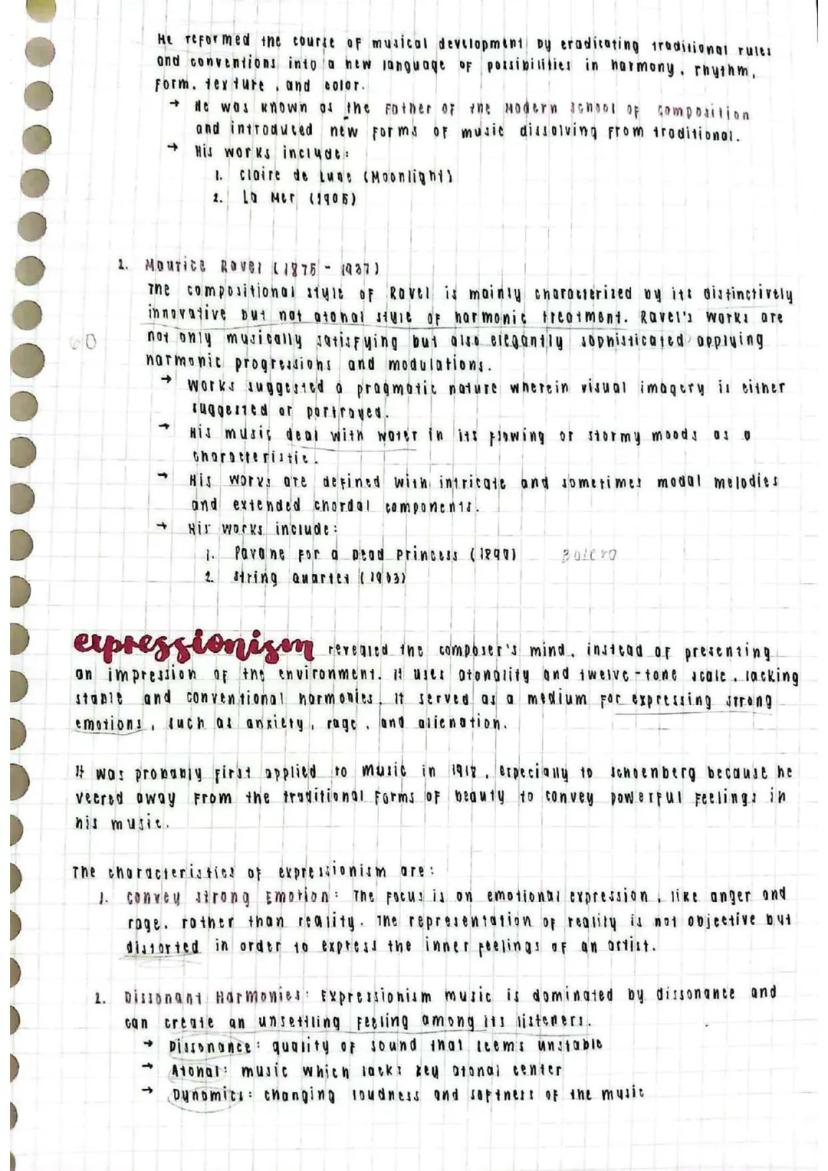 He reformed the course of musical development by eradicating traditional rules
and conventions into a new language of possibilities in harmony, rhythm,
form, texture, and color.
→ He was known as the Father of the Modern School of Composition
and introduced new forms of music dissolving from traditional.
→ His works include:
1. Claire de Lune (Moonlight)
2. La Mer (1905)
2. Maurice Ravel (1875 - 1937)
The compositional style of Ravel is mainly characterized by its distinctively
innovative but not atonal style of harmonic treatment. Ravel's works are
not only musically satisfying but also elegantly sophisticated applying
harmonic progressions and modulations.
→ Works suggested a pragmatic nature wherein visual imagery is either
suggested or portrayed.
→ His music deal with water in its flowing or stormy moods as a
characteristic.
→ His works are defined with intricate and sometimes modal melodies
and extended chordal components.
→ His works include:
1. Pavane for a Dead Princess (1899) Bolero
2. String Quartet (1903)
expressionism revealed the composer's mind, instead of presenting
an impression of the environment. It uses atonality and twelve-tone scale, lacking
stable and conventional harmonies. It served as a medium for expressing strong
emotions, such as anxiety, rage, and alienation.
It was probably first applied to music in 1918, especially to Schoenberg because he
veered away from the traditional forms of beauty to convey powerful feelings in
his music.
The characteristics of expressionism are:
1. Convey Strong Emotion: The focus is on emotional expression, like anger and
rage, rather than reality. The representation of reality is not objective but
distorted in order to express the inner feelings of an artist.
2. Dissonant Harmonies: Expressionism music is dominated by dissonance and
can create an unsettling feeling among its listeners.
→ Dissonance: quality of sound that seems unstable
→ Atonal: music which lacks key atonal center
→ Dynamics: changing loudness and softness of the music